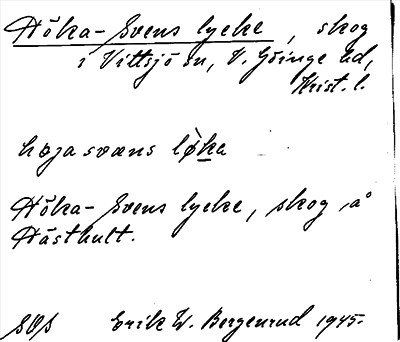 Höka-Svens lycke, skog
i Vittsjö sn, V. Göinge hd,
Krist. l.
højasvæns løka
Höka-Svens lycke, skog på
Hästhult.
Erik W. Bergenrud 1945.